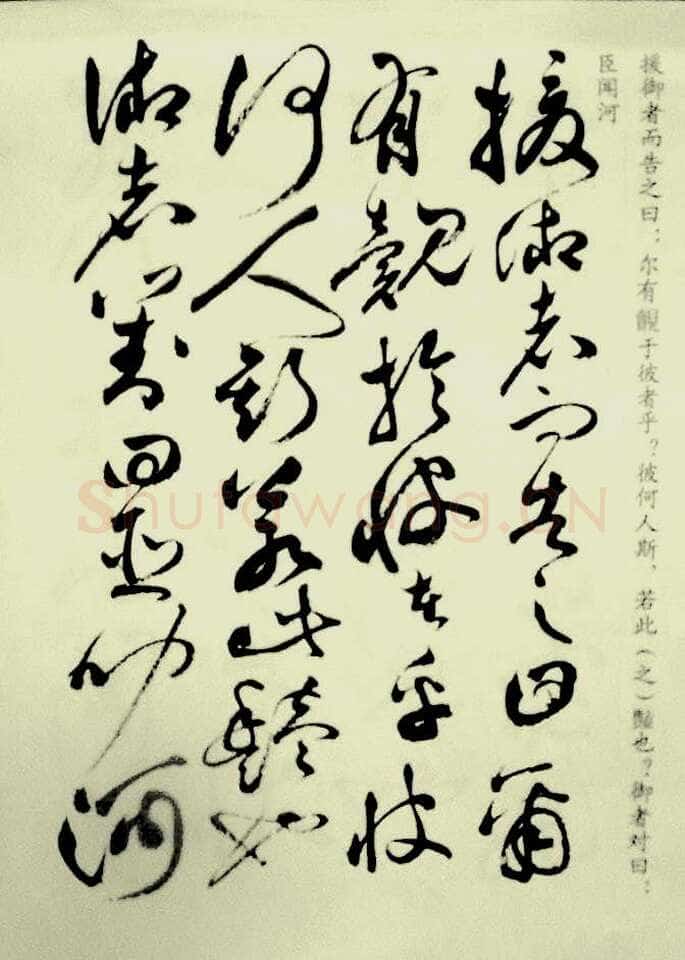 援御者而告之曰：尔有觀于彼者乎？彼何人斯，若此（之）豔也？御者对曰：
臣闻河
援御者而告之曰爾
有觀於彼者乎彼
何人斯若此豔也
御者對曰臣聞河
Shufawang.CN